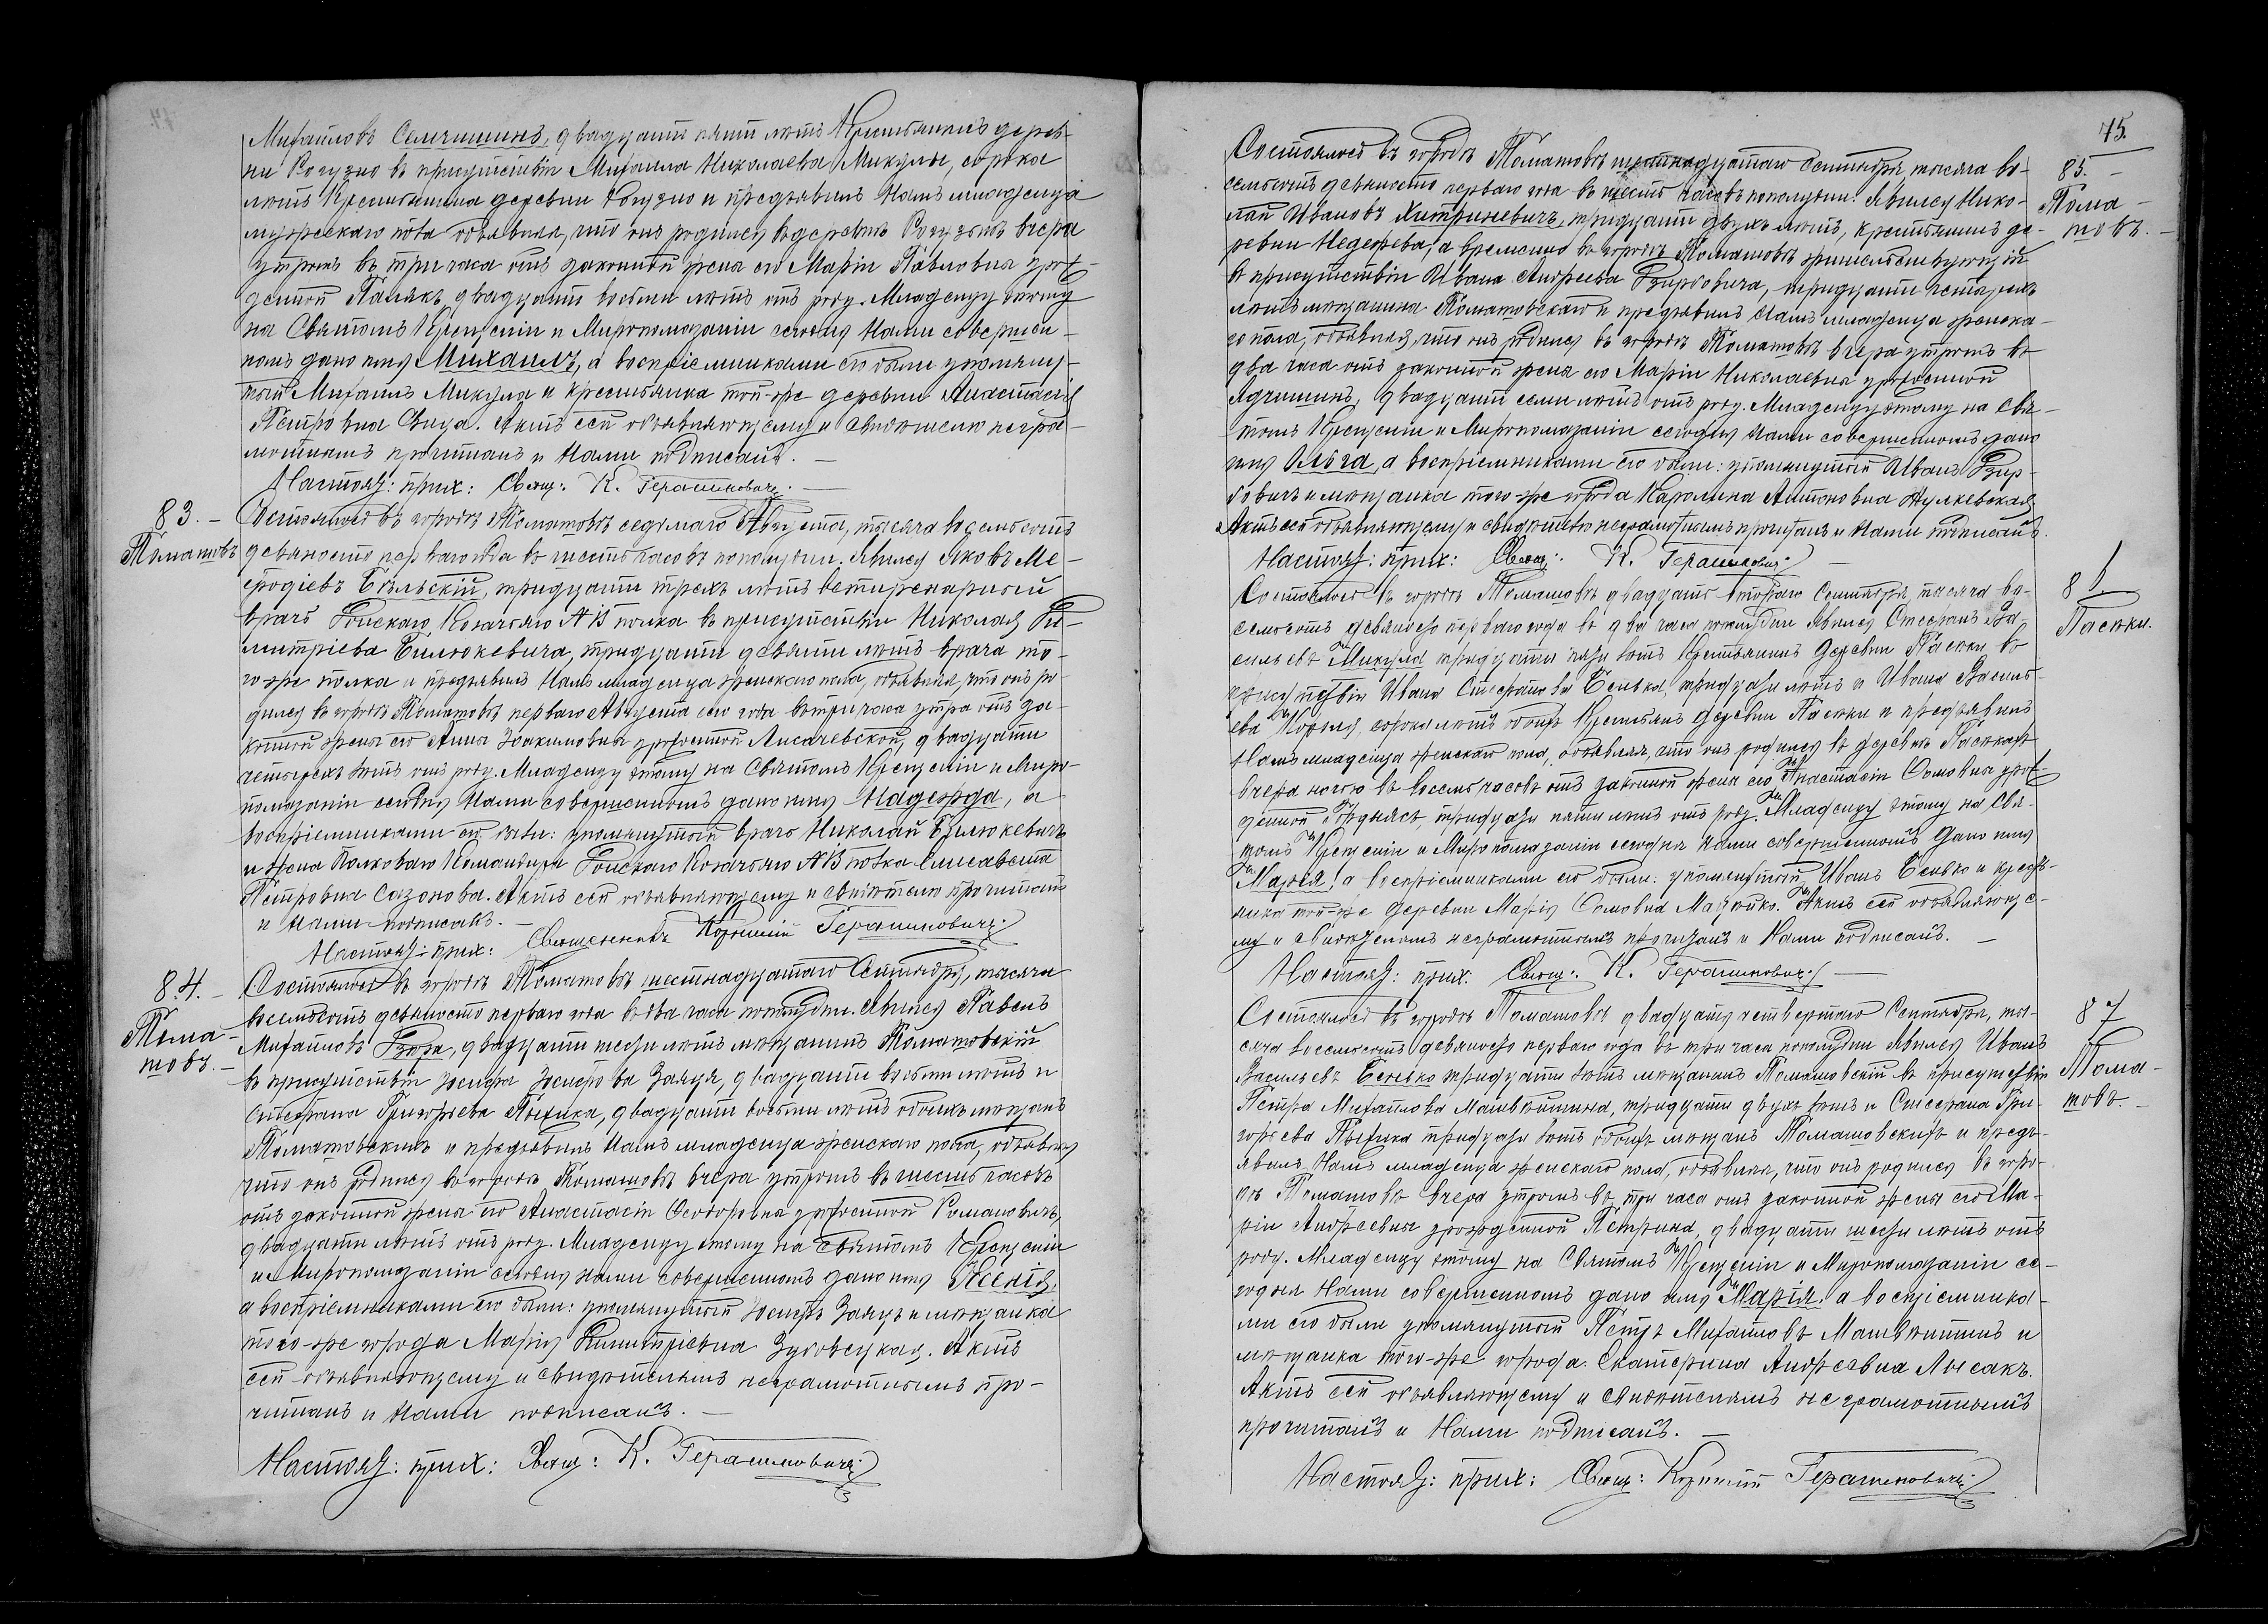 Михайловъ Семчишинъ, двадцати пяти лѣтъ Крестьянинъ дерев-
ни Рогузно въ присутствіи Михаила Николаева Микулы, сорока
лѣтъ Крестьянина деревни Рогузно и предъявилъ Намъ младенца
мужескаго пола объявляя, что онъ родился въ деревнѣ Рогузнѣ вчера
утромъ въ три часа отъ законной жены его Маріи Павловны урож-
денной Паляхъ, двадцати восьми лѣтъ отъ роду. Младенцу этому
на Святомъ Крещеніи и Миропомазаніи сегодня Нами совершен-
номъ дано имя Михаилъ, а воспріемниками его были упомяну-
тый Михаилъ Микула и крестьянка той-же деревни Анастасія
Петровна Свища. Актъ сей объявляющему и свидѣтелю негра-
мотнымъ прочитанъ и Нами подписанъ. —
Настоя: прих: Свящ: К. Герасимовичъ. —
83. —
Томашовъ
Состоялось въ городѣ Томашовѣ седьмаго Августа, тысяча восемьсотъ
девяносто перваго года въ шесть часовъ пополудни. Явился Яковъ Ме-
ѳодіевъ Бѣльскій, тридцати трехъ лѣтъ ветеринарный
врачъ Донскаго Козачьяго №15 полка въ присутствіи Николая Ди-
митріева Билюкевича, тридцати девяти лѣтъ врача то-
го же полка и предъявилъ Намъ младенца женскаго пола, объявляя, что онъ ро-
дился въ городѣ Томашовѣ перваго Августа сего года въ три часа утра отъ за-
конной жены его Анны Іоакимовны урожденной Лисачевской, двадцати
четырехъ лѣтъ отъ роду. Младенцу этому на Святомъ Крещеніи и Миро-
помазаніи сегодня Нами совершенномъ дано имя Надежда, а
воспріемниками его были: упомянутый врачъ Николай Билюкевичъ
и жена Полковаго Командира Донскаго Козачьяго №15 полка Елисавета
Петровна Сазонова. Актъ сей объявляющему и свидѣтелю прочитанъ
и Нами подписанъ. —
Настоя: прих: Священникъ Корнилій Герасимовичъ
84. —
Тома-
шовъ. —
Состоялось въ городѣ Томашовѣ шестнадцатаго Сентября, тысяча
восемьсотъ девяносто перваго года въ два часа пополудни. Явился Павелъ
Михайловъ Гзюра, двадцати шести лѣтъ мѣщанинъ Томашовскій
въ присутствіи Іосифа Іосифова Заяца, двадцати восьми лѣтъ и
Стефана Григорьева Пыжика, двадцати восьми лѣтъ обоихъ мѣщанъ
Томашовскихъ и предъявилъ Намъ младенца женскаго пола, объявляя
что онъ родился въ городѣ Томашовѣ вчера утромъ въ шесть часовъ
отъ законной жены его Анастасіи Ѳеодоровны урожденной Романовичъ,
двадцати лѣтъ отъ роду. Младенцу этому на Святомъ Крещеніи
и Миропомазаніи сегодня Нами совершенномъ дано имя Ксенія,
а воспріемниками его были: упомянутый Іосифъ Заяцъ и мѣщанка
того-же города Марія Димитріевна Зубовецкая. Актъ
сей объявляющему и свидѣтелямъ неграмотнымъ про-
читанъ и Нами подписанъ. —
Настоя: прих: Свящ: К. Герасимовичъ
75.
85. —
Тома-
шовъ. —
Состоялось въ городѣ Томашовѣ шестнадцатаго Сентября, тысяча во-
семьсотъ девяносто перваго года въ шесть часовъ пополудни. Явился Нико-
лай Ивановъ Хитриневичъ, тридцати двухъ лѣтъ, крестьянинъ де-
ревни Недежева, а временно въ городѣ Томашовѣ жительствующій
въ присутствіи Ивана Андреева Гзирбовича, тридцати четырехъ
лѣтъ мѣщанина Томашовскаго и предъявилъ Намъ младенца женска-
го пола, объявляя, что онъ родился въ городѣ Томашовѣ вчера утромъ въ
два часа отъ законной жены его Маріи Николаевны урожденной
Ядчишинъ, двадцати семи лѣтъ отъ роду. Младенцу этому на Свя-
томъ Крещеніи и Миропомазаніи сегодня Нами совершенномъ дано
имя Ольга, а воспріемниками его были: упомянутый Иванъ Гзир-
бовичъ и мѣщанка того же города Каролина Антоновна Жулкевская
Актъ сей объявляющему и свидѣтелю неграмотнымъ прочитанъ и Нами подписанъ.
Настоя: прих: Свящ: К. Герасимовичъ —
86
Пасѣки.
Состоялось въ городѣ Томашовѣ двадцать втораго Сентября, тысяча во-
семьсотъ девяносто перваго года въ два часа пополудни Явился Стефанъ Ва-
сильевъ Микула тридцати пяти лѣтъ Крестьянинъ Деревни Пасѣки въ
присутствіи Ивана Стефанова Сенька, тридцати лѣтъ и Ивана Василь-
ева Короля, сорока лѣтъ обоихъ Крестьянъ деревни Пасѣки и предъявилъ
Намъ младенца женскаго пола, объявляя, что онъ родился въ деревнѣ Пасѣкахъ
вчера ночью въ восемь часовъ отъ законной жены его Анастасіи Ѳомовны урож-
денной Гордынсъ, тридцати пяти лѣтъ отъ роду. Младенцу этому на Свя-
томъ Крещеніи и Миропомазаніи сегодня Нами совершенномъ дано имя
Марія, а воспріемниками его были: упомянутый Иванъ Сенько и кресть-
янка той-же деревни Марія Ѳомовна Мазюйко. Актъ сей объявляюще-
му и свидѣтелямъ неграмотнымъ прочитанъ и Нами подписанъ. —
Настоя: прих: Свящ: К. Герасимовичъ —
87
Тома-
шовъ. —
Состоялось въ городѣ Томашовѣ двадцать четвертаго Сентября, ты-
сяча восемьсотъ девяносто перваго года въ три часа пополудни Явился Иванъ
Васильевъ Сенько тридцати лѣтъ мѣщанинъ Томашовскій въ присутствіи
Петра Михайлова Матвѣишина, тридцати двухъ лѣтъ и Стефана Гри-
горьева Пыжика тридцати лѣтъ обоихъ мѣщанъ Томашовскихъ и предъ-
явилъ Намъ младенца женскаго пола, объявляя, что онъ родился въ горо-
дѣ Томашовѣ вчера утромъ въ три часа отъ законной жены его Ма-
ріи Андреевны урожденной Петрина, двадцати шести лѣтъ отъ
роду. Младенцу этому на Святомъ Крещеніи и Миропомазаніи се-
годня Нами совершенномъ дано имя Марія, а воспріемника-
ми его были упомянутый Петръ Михайловъ Матвѣишинъ и
мѣщанка того-же города Екатерина Андреевна Лысакъ.
Актъ сей объявляющему и свидѣтелямъ неграмотнымъ
прочитанъ и Нами подписанъ. —
Настоя: прих: Свящ: Корнилій Герасимовичъ